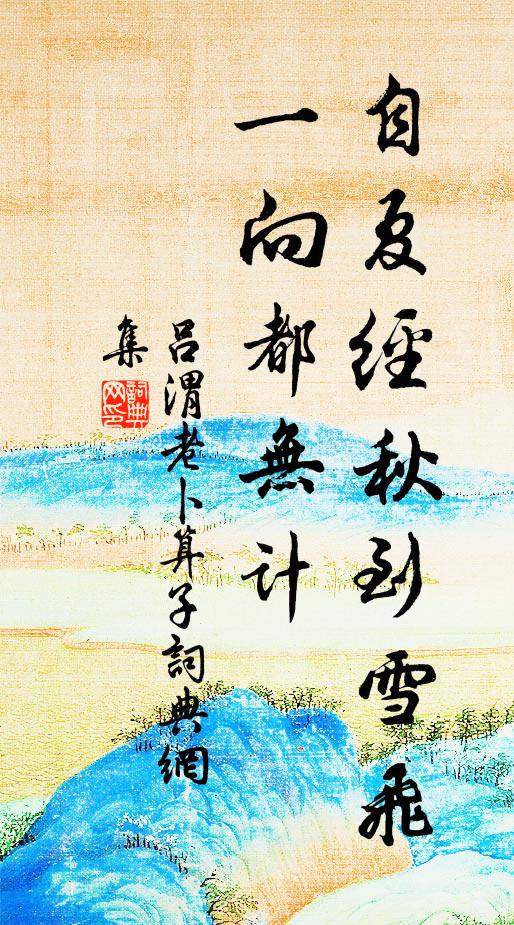 自夏經秋到雪飛
一向都無計
呂渭老卜算子詞典網
集
詞典網印